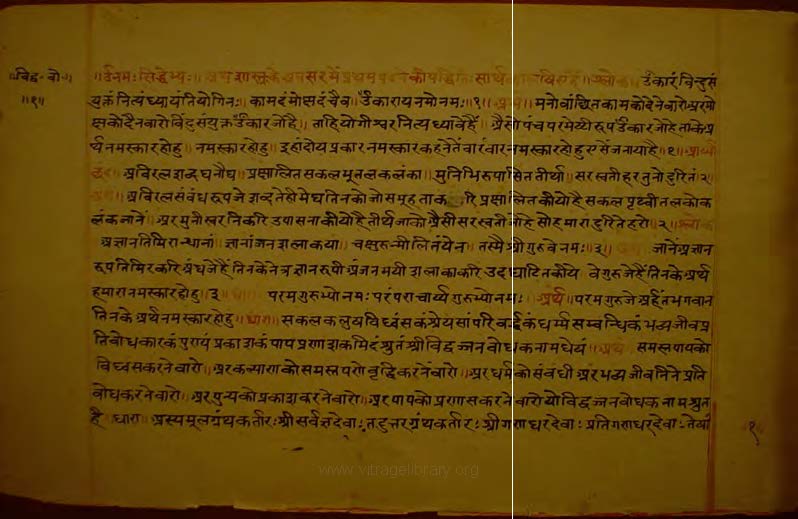 ॥विद्व॰बो॰॥
॥१॥
॥ॐनमःसिद्धेभ्यः॥ अथशास्त्रके प्रथम श्लोक॥ उँकारंविन्दुसं
युक्तंनित्यंध्यायंतियोगिनः॥ कामदंमोक्षदंचैव॥ उँकारायनमोनमः॥१॥ अर्थ॥ मनोवांछितकामकोदेनेवारोअरमो
क्षकोदैनवारोविंदुसंयुक्तउँकारजोहै॥ ताहियोगीश्वरनित्यध्यावेहैं॥ अैसोपंचपरमेष्ठीरूपउँकारजोहैताकेअ
र्थनमस्कारहोहु॥ नमस्कारहोहु॥ इहांदोयप्रकारनमस्कारकहनेतेंवारंवारनमस्कारहोहुएसेंजनायाहै॥१॥
अविरलशब्दघनौघ॥ प्रक्षालितसकलभूतलकलंका॥ मुनिभिरुपासिततीर्था॥ सरस्वतीहरतुनोदुरितं॥२॥
अर्थ॥ अविरलसंबंधरूपजेशब्दतेहीमेघतिनकोजोसमूहताक रिप्रक्षालितकीयोहैसकलपृथ्वीतलकोक
लंकजानें॥ अरमुनीस्वरनिकरिउपासनाकीयोहैतीर्थजाकोअैसीसरस्वतीजोहैसोहमारादुरितहरो॥२॥ श्लोक
अज्ञानतिमिरान्धानां॥ ज्ञानांजनशलाकया॥ चक्षुरुन्मीलितंयेन॥ तस्मैश्रीगुरुवेनमः॥३॥ अर्थ॥ जानेंअज्ञान
रूपतिमिरकरिअंधजेहैंतिनकेनेत्रज्ञानरूपीअंजनमयीशलाकाकरिउदघाटितकीये वेगुरुजेहैंतिनकेअर्थ
हमारानमस्कारहोहु॥३॥ धारा॥ परमगुरुभ्योनमःपरंपराचार्य्यगुरुभ्योनमः॥ अर्थ॥ परमगुरुजेअर्हंतभगवान
तिनकेअर्थनमस्कारहोहु॥ धारा॥ सकलकलुषविध्वंसकंश्रेयसांपरिवर्द्धकंधर्म्मसम्बन्धिकंभव्यजीवप्र
तिबोधकारकंपुण्यंप्रकाशकंपापप्रणाशकमिदंश्रुतंश्रीविद्वज्जनबोधकनामधेयं॥ अर्थ॥ समस्तपापको
विध्वंसकरनेवारो॥ अरकल्याणकोसमस्तपणेवृद्धिकरनेवारो॥ अरधर्मकोसंबंधी॥ अरभव्यजीवनिनेप्रति
बोधकरनेवारो॥ अरपुन्यकोप्रकाशकरनेवारो॥ अरपापकोप्रणासकरनेवारोयोविद्वज्जनबोधकनामश्रुत
है॥ धारा॥ अस्यमूलग्रंथकर्तारःश्रीसर्वज्ञदेवाःतदुत्तरग्रंथकर्तारःश्रीगणधरदेवाःप्रतिगणधरदेवाःतेषां
१
www.vitragelibrary.org